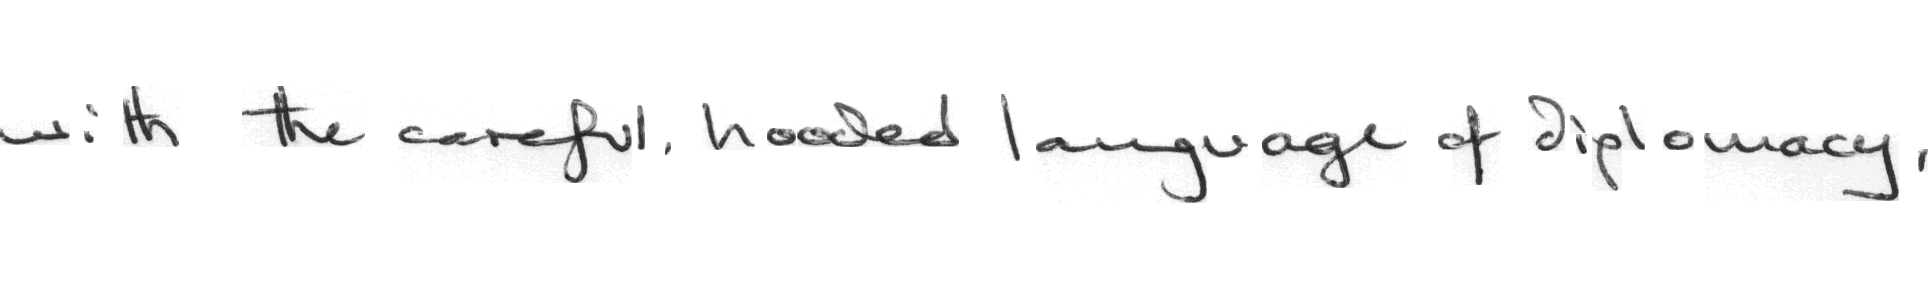 with the careful, hooded language of diplomacy,